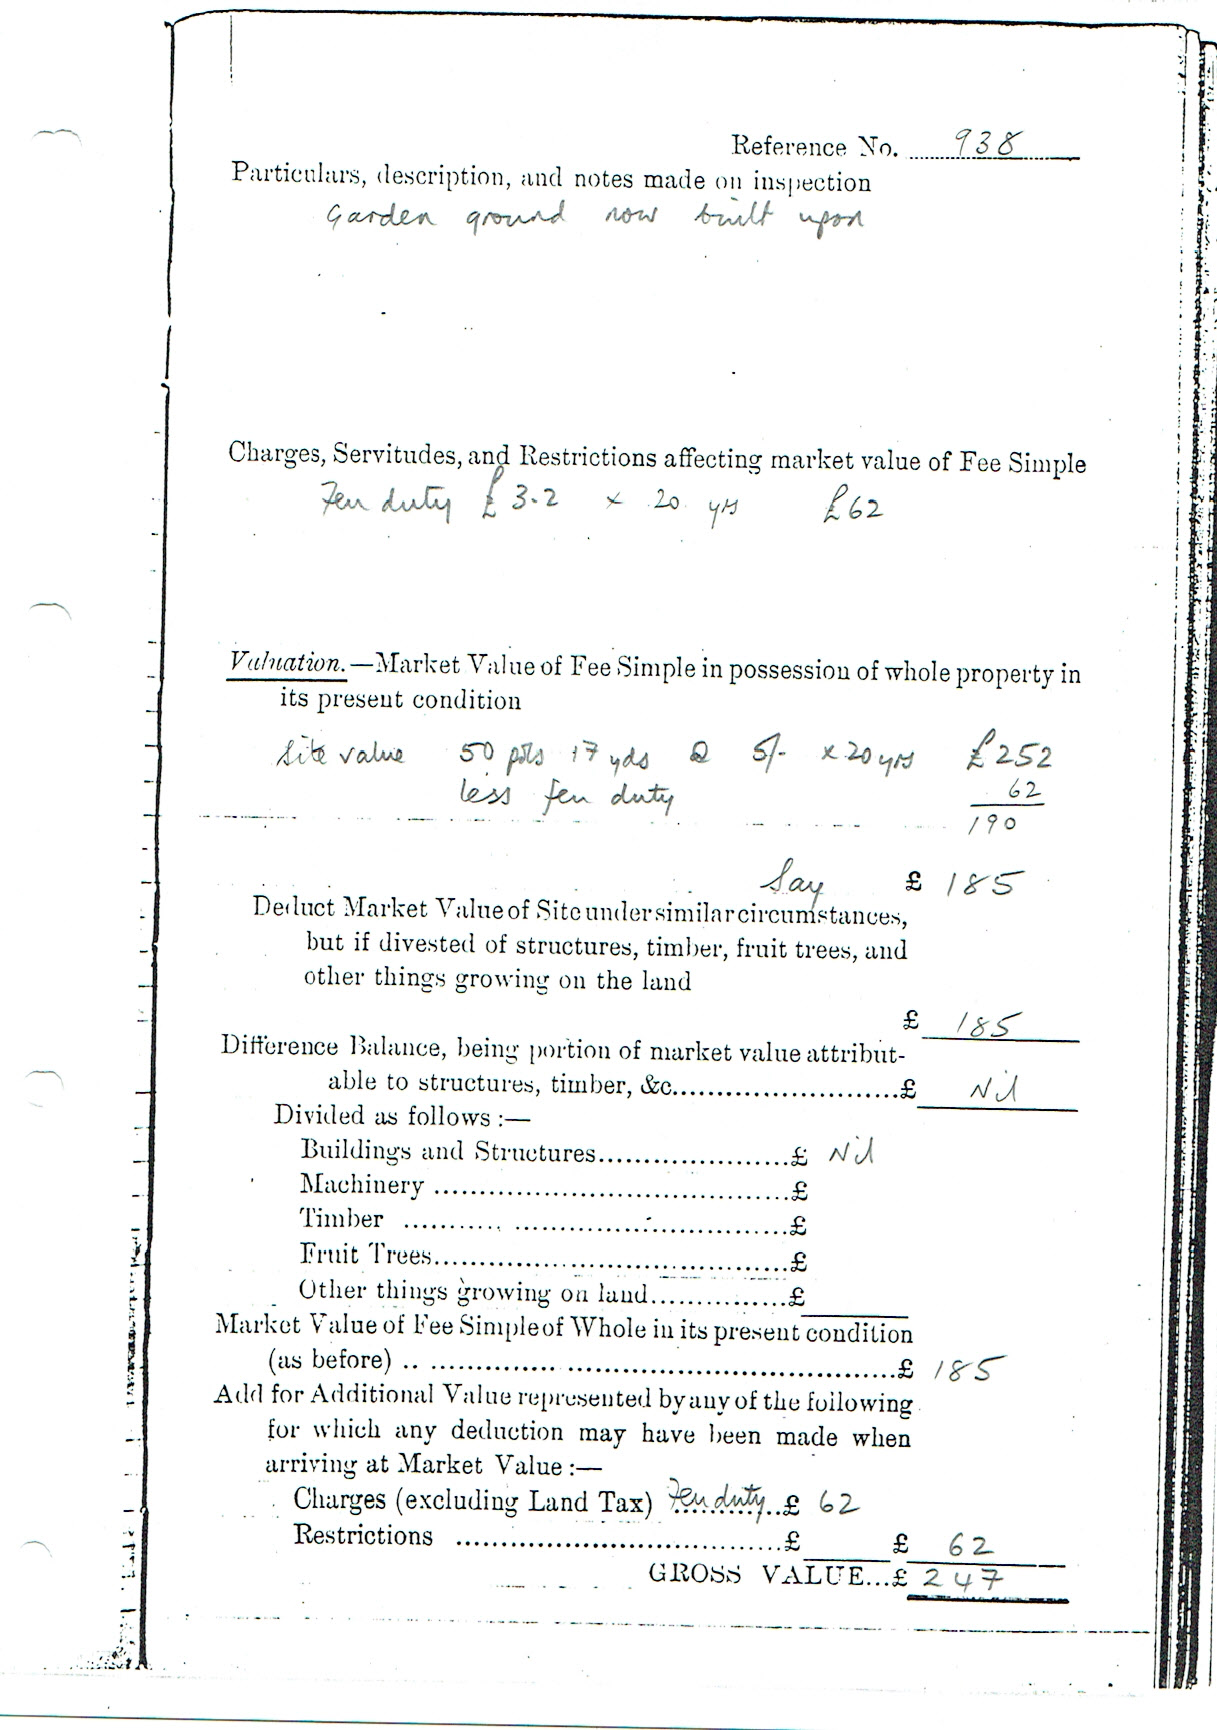 Reference No. 938
Particulars, description, and notes made on inspection
Garden ground now built upon
Charges, Servitudes, and Restrictions affecting market value of Fee Simple
Feu duty £3.2 x 20 yrs £62
Valuation.—Market Value of Fee Simple in possession of whole property in
its present condition
Site value 50 pols 17 yds @ 5/- x 20 yrs £252
less feu duty 62
190
Say £ 185
Deduct Market Value of Site under similar circumstances,
but if divested of structures, timber, fruit trees, and
other things growing on the land
£ 185
Difference Balance, being portion of market value attribut-
able to structures, timber, &c.........................£ Nil
Divided as follows :—
Buildings and Structures.....................£ Nil
Machinery .......................................£
Timber ..........................................£
Fruit Trees.......................................£
Other things growing on land...............£
Market Value of Fee Simple of Whole in its present condition
(as before) .. ....................................................£ 185
Add for Additional Value represented by any of the following
for which any deduction may have been made when
arriving at Market Value :—
Charges (excluding Land Tax) Feu duty £ 62
Restrictions ....................................£ £ 62
GROSS VALUE...£ 247